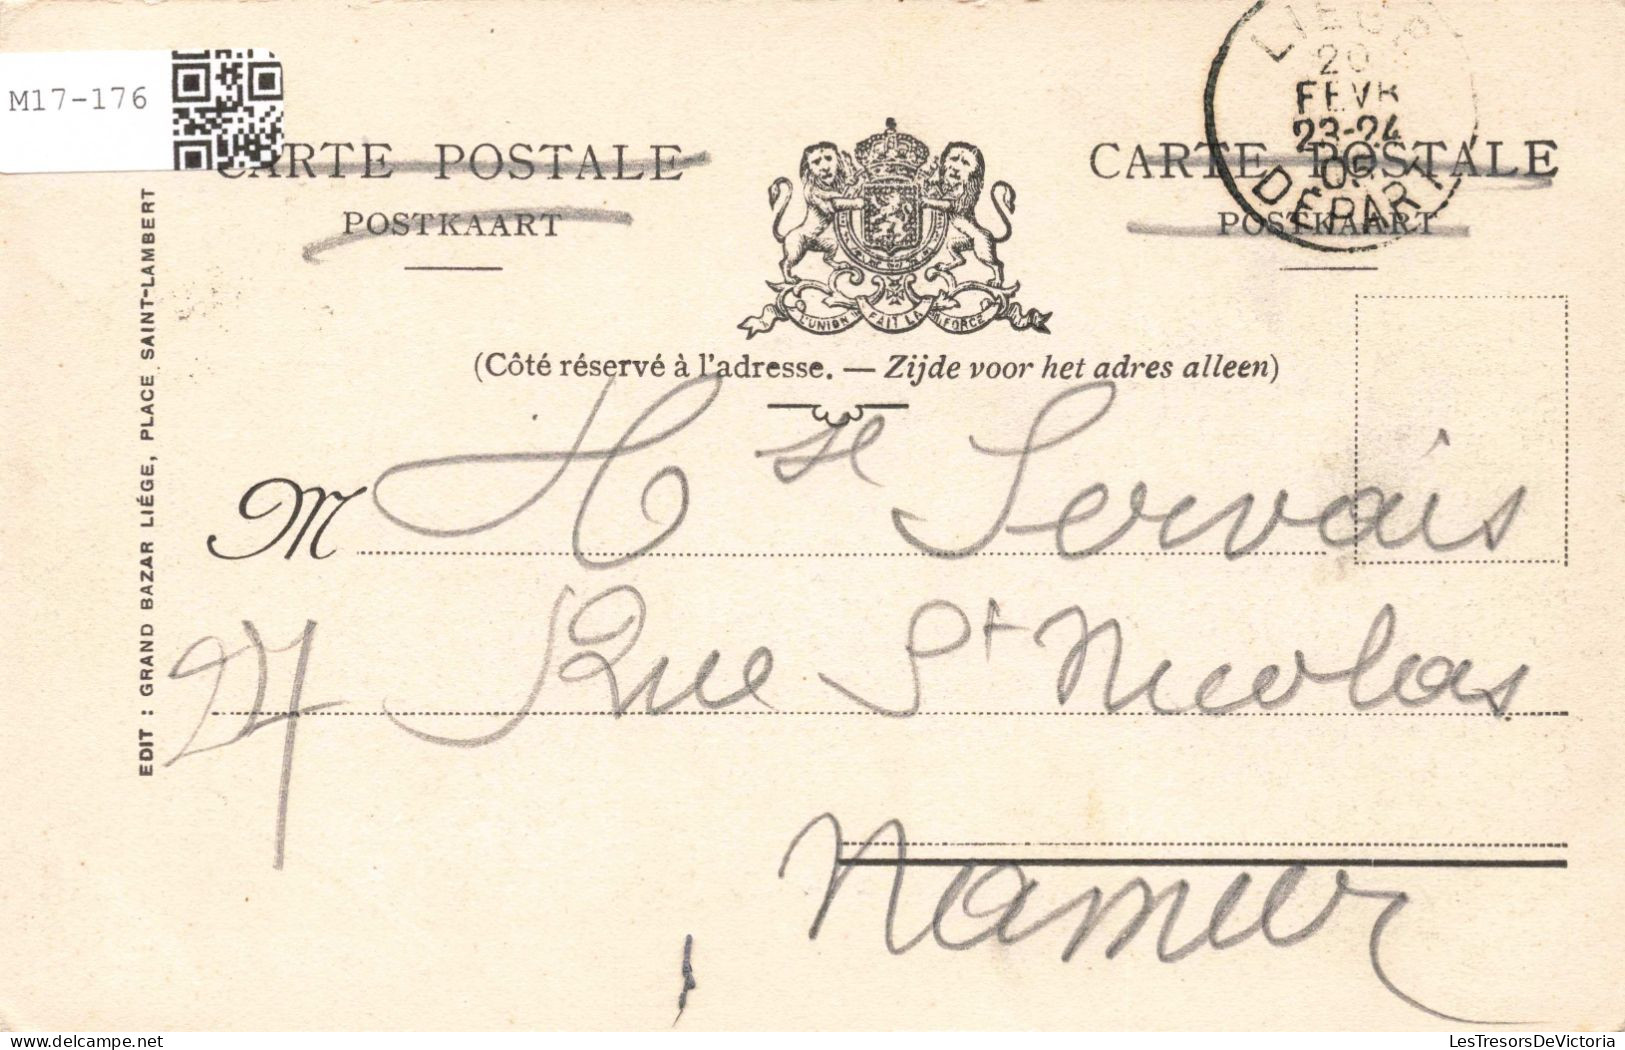 M17-176
CARTE POSTALE
POSTKAART
CARTE POSTALE
POSTKAART
LIEGE
20
FEVR
23-24
DEPART
L'UNION FAIT LA FORCE
(Côté réservé à l'adresse. — Zijde voor het adres alleen)
M Servais
27 Rue St Nicolas
Namur
EDIT : GRAND BAZAR LIÉGE, PLACE SAINT-LAMBERT
delcampe.net
LesTresorsDeVictoria